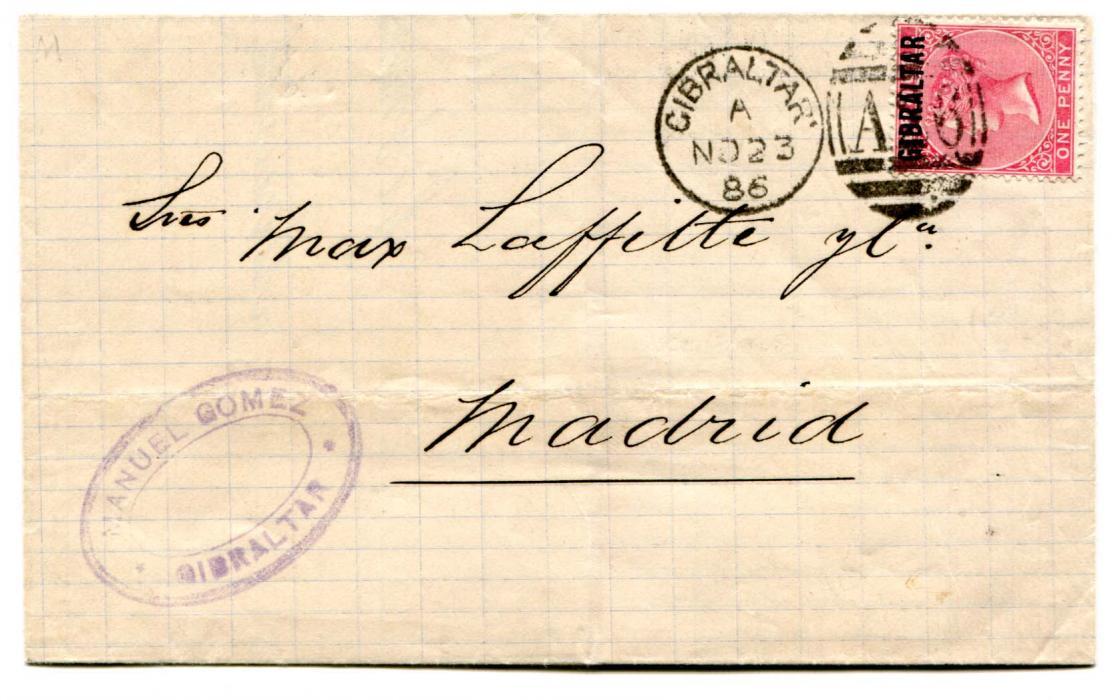 GIBRALTAR
A
NO 23
86
A 26
GIBRALTAR
ONE PENNY
Sres Max Laffitte y Ca.
Madrid
MANUEL GOMEZ
GIBRALTAR